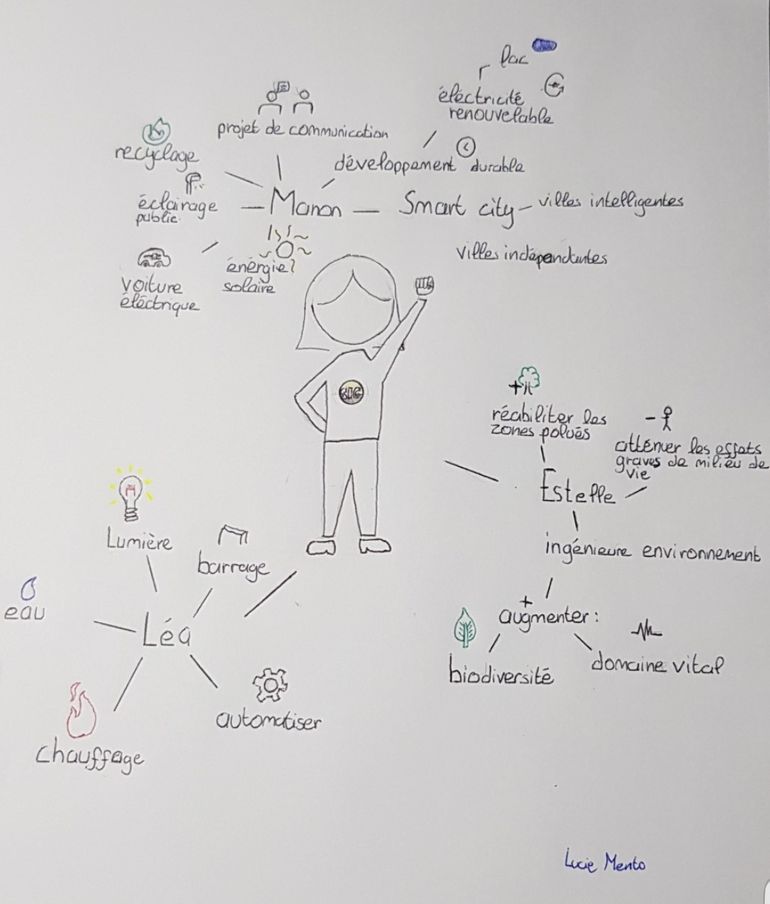 lac
éléctricité
renouvelable
projet de communication
recyclage
développement durable
éclairage
public
Manon
Smart city
villes intelligentes
villes indépendantes
voiture
éléctrique
énérgie
solaire
réabiliter les
zones polués
atténuer les effets
graves de milieu de
vie
Estelle
ingénieure environnement
+
augmenter:
biodiversité
domaine vital
Lumière
barrage
eau
Léa
automatiser
chauffage
Lucie Mento